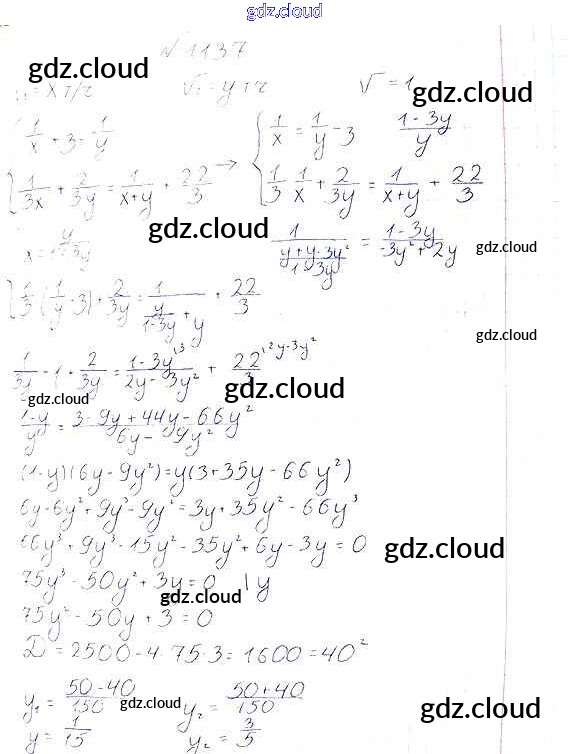 gdz.cloud
№ 1137
gdz.cloud
√ = 1 gdz.cloud
1/x + 3 = 1/y
{ 1/x = 1/y - 3 (1-3y)/y
{ 1/3x + 2/3y = 1/(x+y) + 22/3 → 1/3 · 1/x + 2/3y = 1/(x+y) + 22/3
gdz.cloud gdz.cloud
x = y/(1-3y) 1/((y+y-3y²)/(1-3y)) = (1-3y)/(-3y²+2y) gdz.cloud
{ 1/3 (1/y - 3) + 2/3y = 1/(y/(1-3y) + y) + 22/3
gdz.cloud
1/3y - 1 + 2/3y = (1-3y)^{\3}/(2y-3y²) + 22^{\2y-3y²}/3
gdz.cloud gdz.cloud
(1-y)/y = (3-9y+44y-66y²)/(6y-9y²)
(1-y)(6y-9y²)=y(3+35y-66y²)
gdz.cloud
6y-6y²+9y³-9y²=3y+35y²-66y³
66y³+9y³-15y²-35y²+6y-3y=0 gdz.cloud
75y³-50y²+3y=0 | y
gdz.cloud
75y²-50y+3=0
D=2500-4·75·3=1600=40²
gdz.cloud
y₁ = (50-40)/150 gdz.cloud y₂ = (50+40)/150 gdz.cloud
y = 1/15 y₂ = 3/5
gdz.cloud